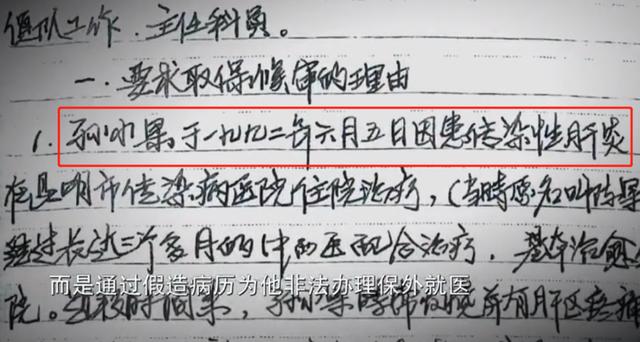 队工作.主任科员。
一.要求取保候审的理由
1.孙小果于一九九二年六月五日因患传染性肝炎
在昆明市传染病医院住院治疗，(当时原名叫陈果
经过长达三个多月的中西医配合治疗，基本治愈
而是通过假造病历为他非法办理保外就医
院。时间来，孙小果有肝区疼痛